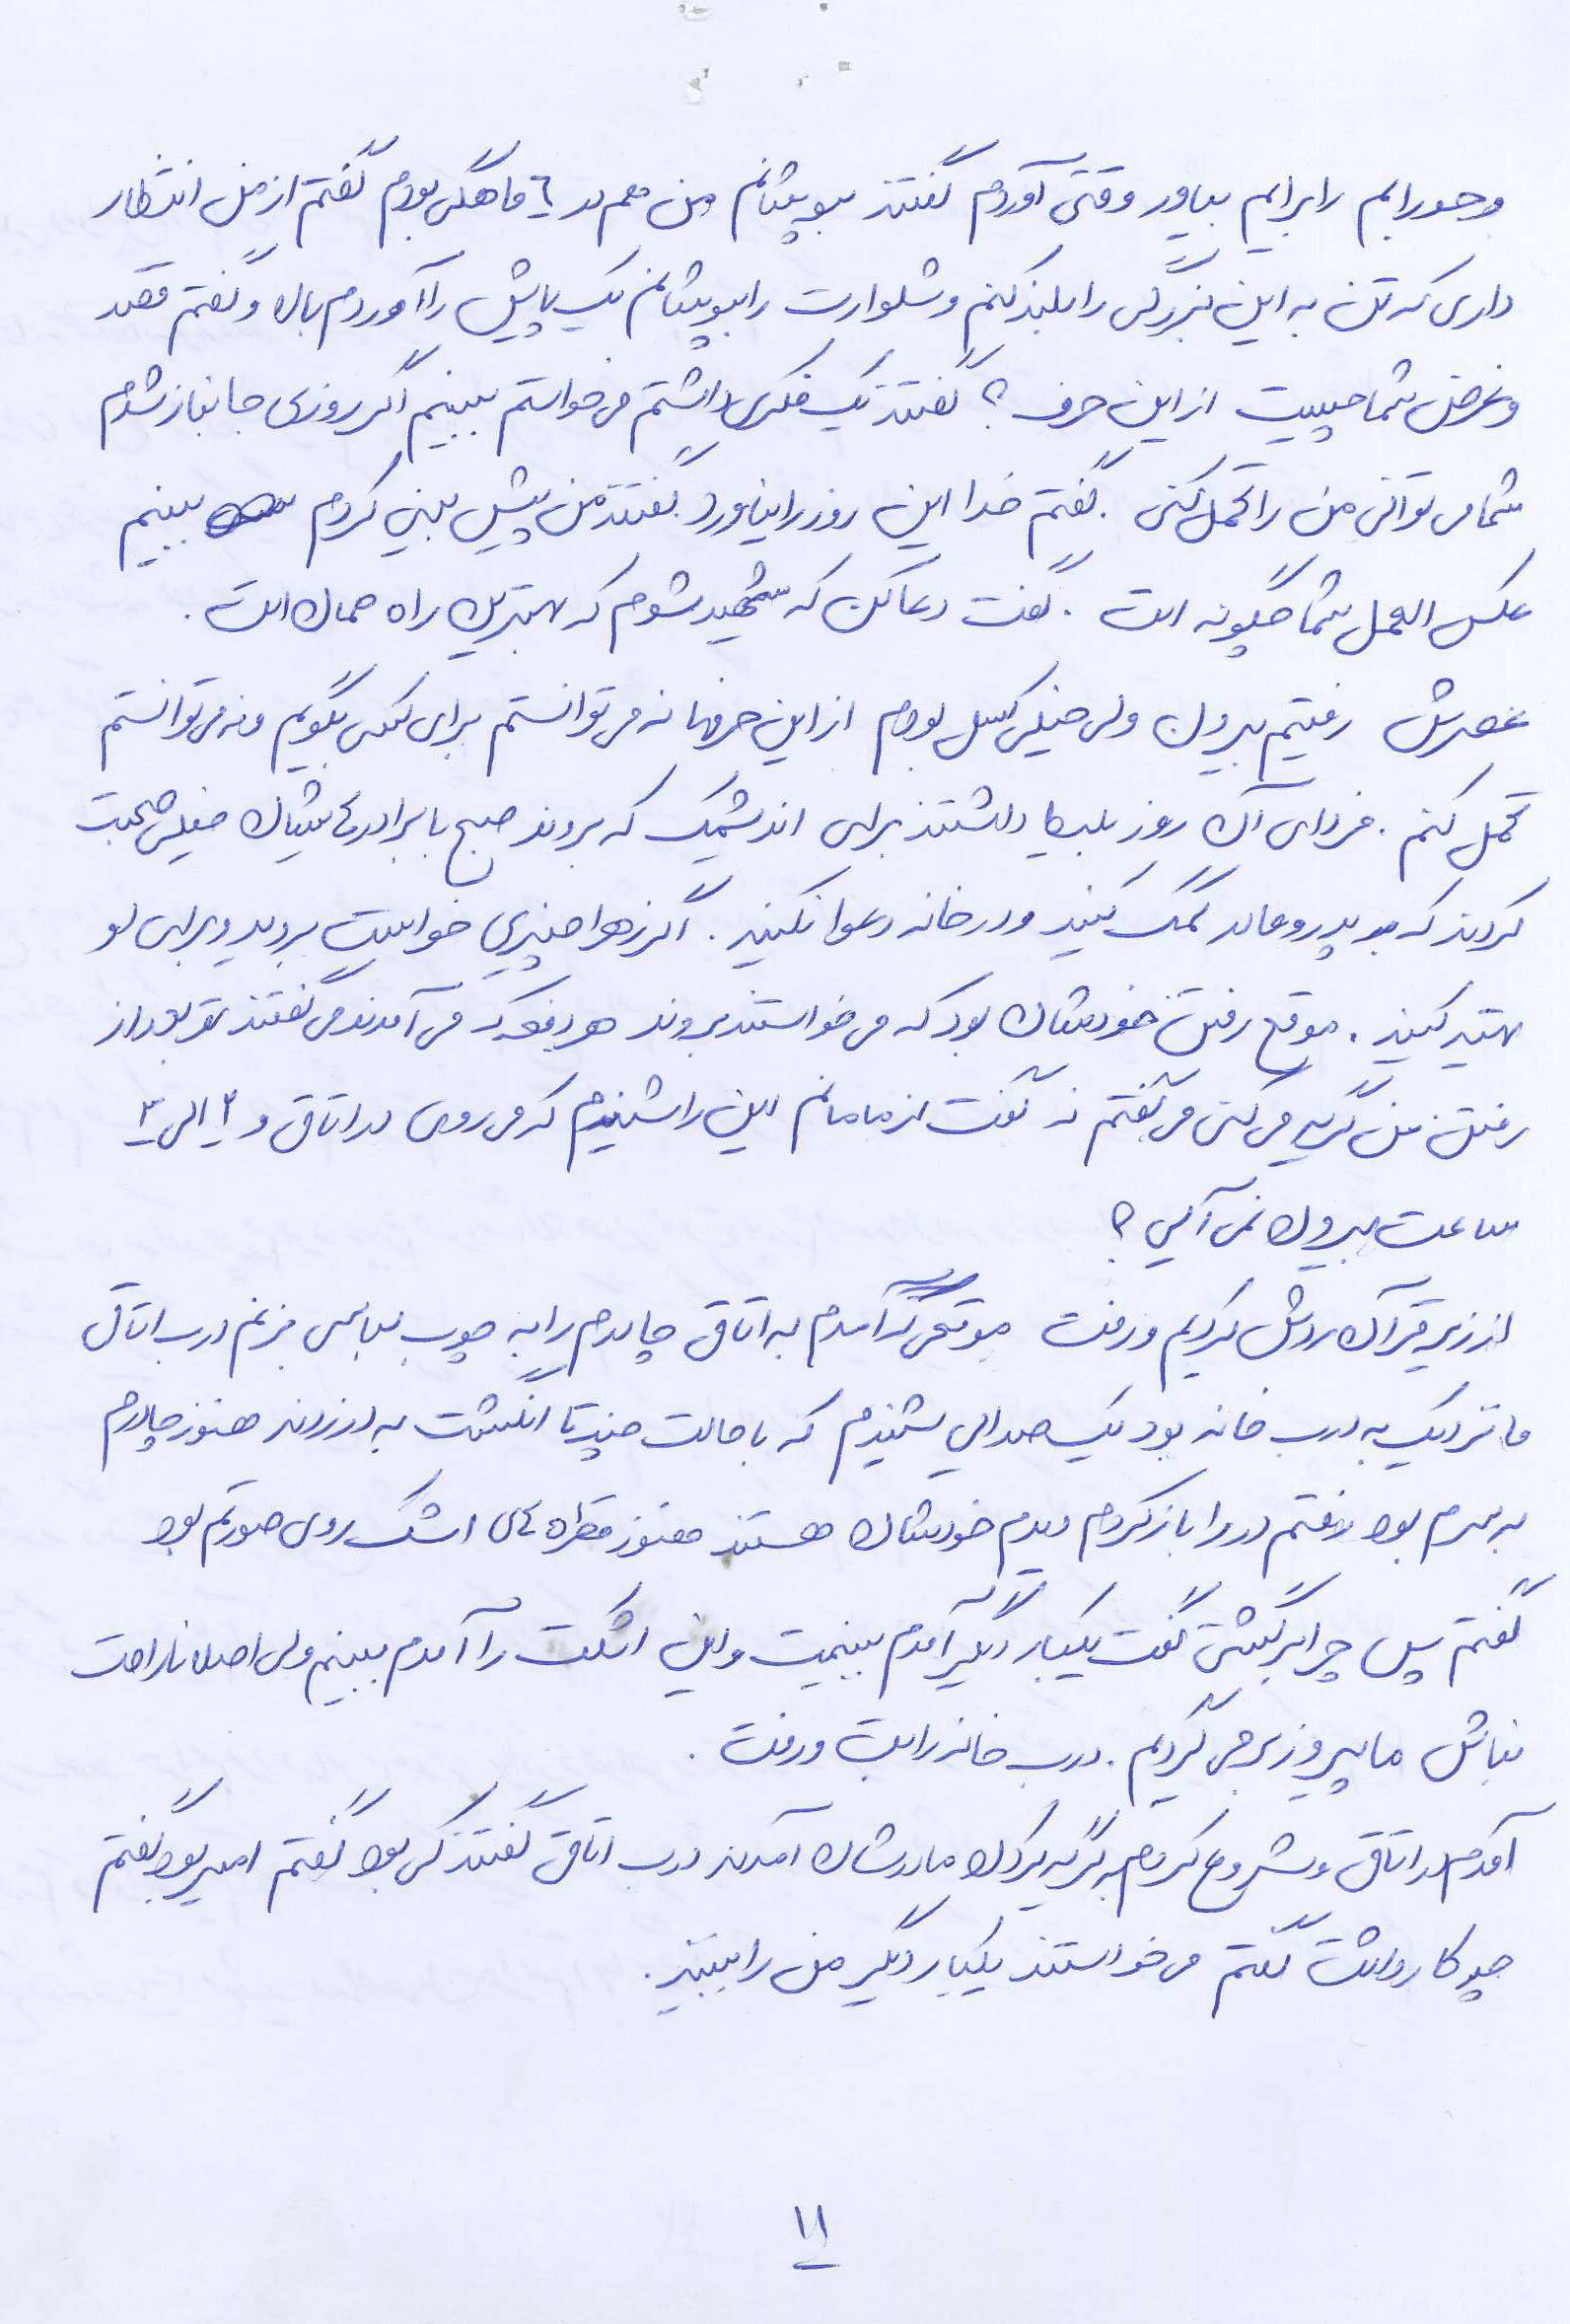 وجورابم رابرایم بیاور وقتی آوردم گفتند بپوشانم من هم در ۶ ماهگی بودم گفتم از من انتظار
داری که تن به این بزرگی را بلند کنم و شلوارت را بپوشانم یک پایش را آوردم بالا و گفتم قصد
و غرض شما چیست از این حرف ؟ گفتند یک فکری داشتم می خواستم ببینم اگر روزی جانباز شدم
شما می توانی من را تحمل کنی . گفتم خدا این روز را نیاورد گفتند من پیش بینی کردم ببینم
عکس العمل شما چگونه است . گفت دعا کن که شهید شوم که بهترین راه همان است .
عصرش رفتیم بیرون ولی خیلی کسل بودم از این حرفها نه می توانستم برای کسی بگویم و نه می توانستم
تحمل کنم . فردای آن روز بلیط داشتند برای اندیمشک که بروند صبح با برادرهایشان خیلی صحبت
کردند که به پدر و مادر کمک کنید و در خانه دعوا نکنید . اگر زهرا چیزی خواست بروید و برای او
تهیه کنید . موقع رفتن خودشان بود که می خواستند بروند هر دفعه که می آمدند می گفتند تو بعد از
رفتن من گریه می کنی می گفتم نه گفت از مامانم این را شنیدم که می روی در اتاق و ۲ الی ۳
ساعت بیرون نمی آیی ؟
از زیر قرآن ردش کردیم و رفت موقعی که آمدم به اتاق چادرم را به چوب لباسی بزنم درب اتاق
ما نزدیک به درب خانه بود یک صدایی شنیدم که با حالت چند تا انگشت به در زدند هنوز چادرم
به سرم بود رفتم در را باز کردم دیدم خودشان هستند هنوز قطره های اشک روی صورتم بود
گفتم پس چرا برگشتی گفت یکبار دیگر آمدم ببینمت و این اشکت را آمدم ببینم ولی اصلا ناراحت
نباش ما پیروز برمی گردیم . درب خانه را بست و رفت .
آمدم در اتاق و شروع کردم به گریه کردن مادرشان آمدند درب اتاق گفتند کی بود گفتم امیر بود گفتم
چه کار داشت گفتم می خواستند یکبار دیگر من را ببینند .
۱۱